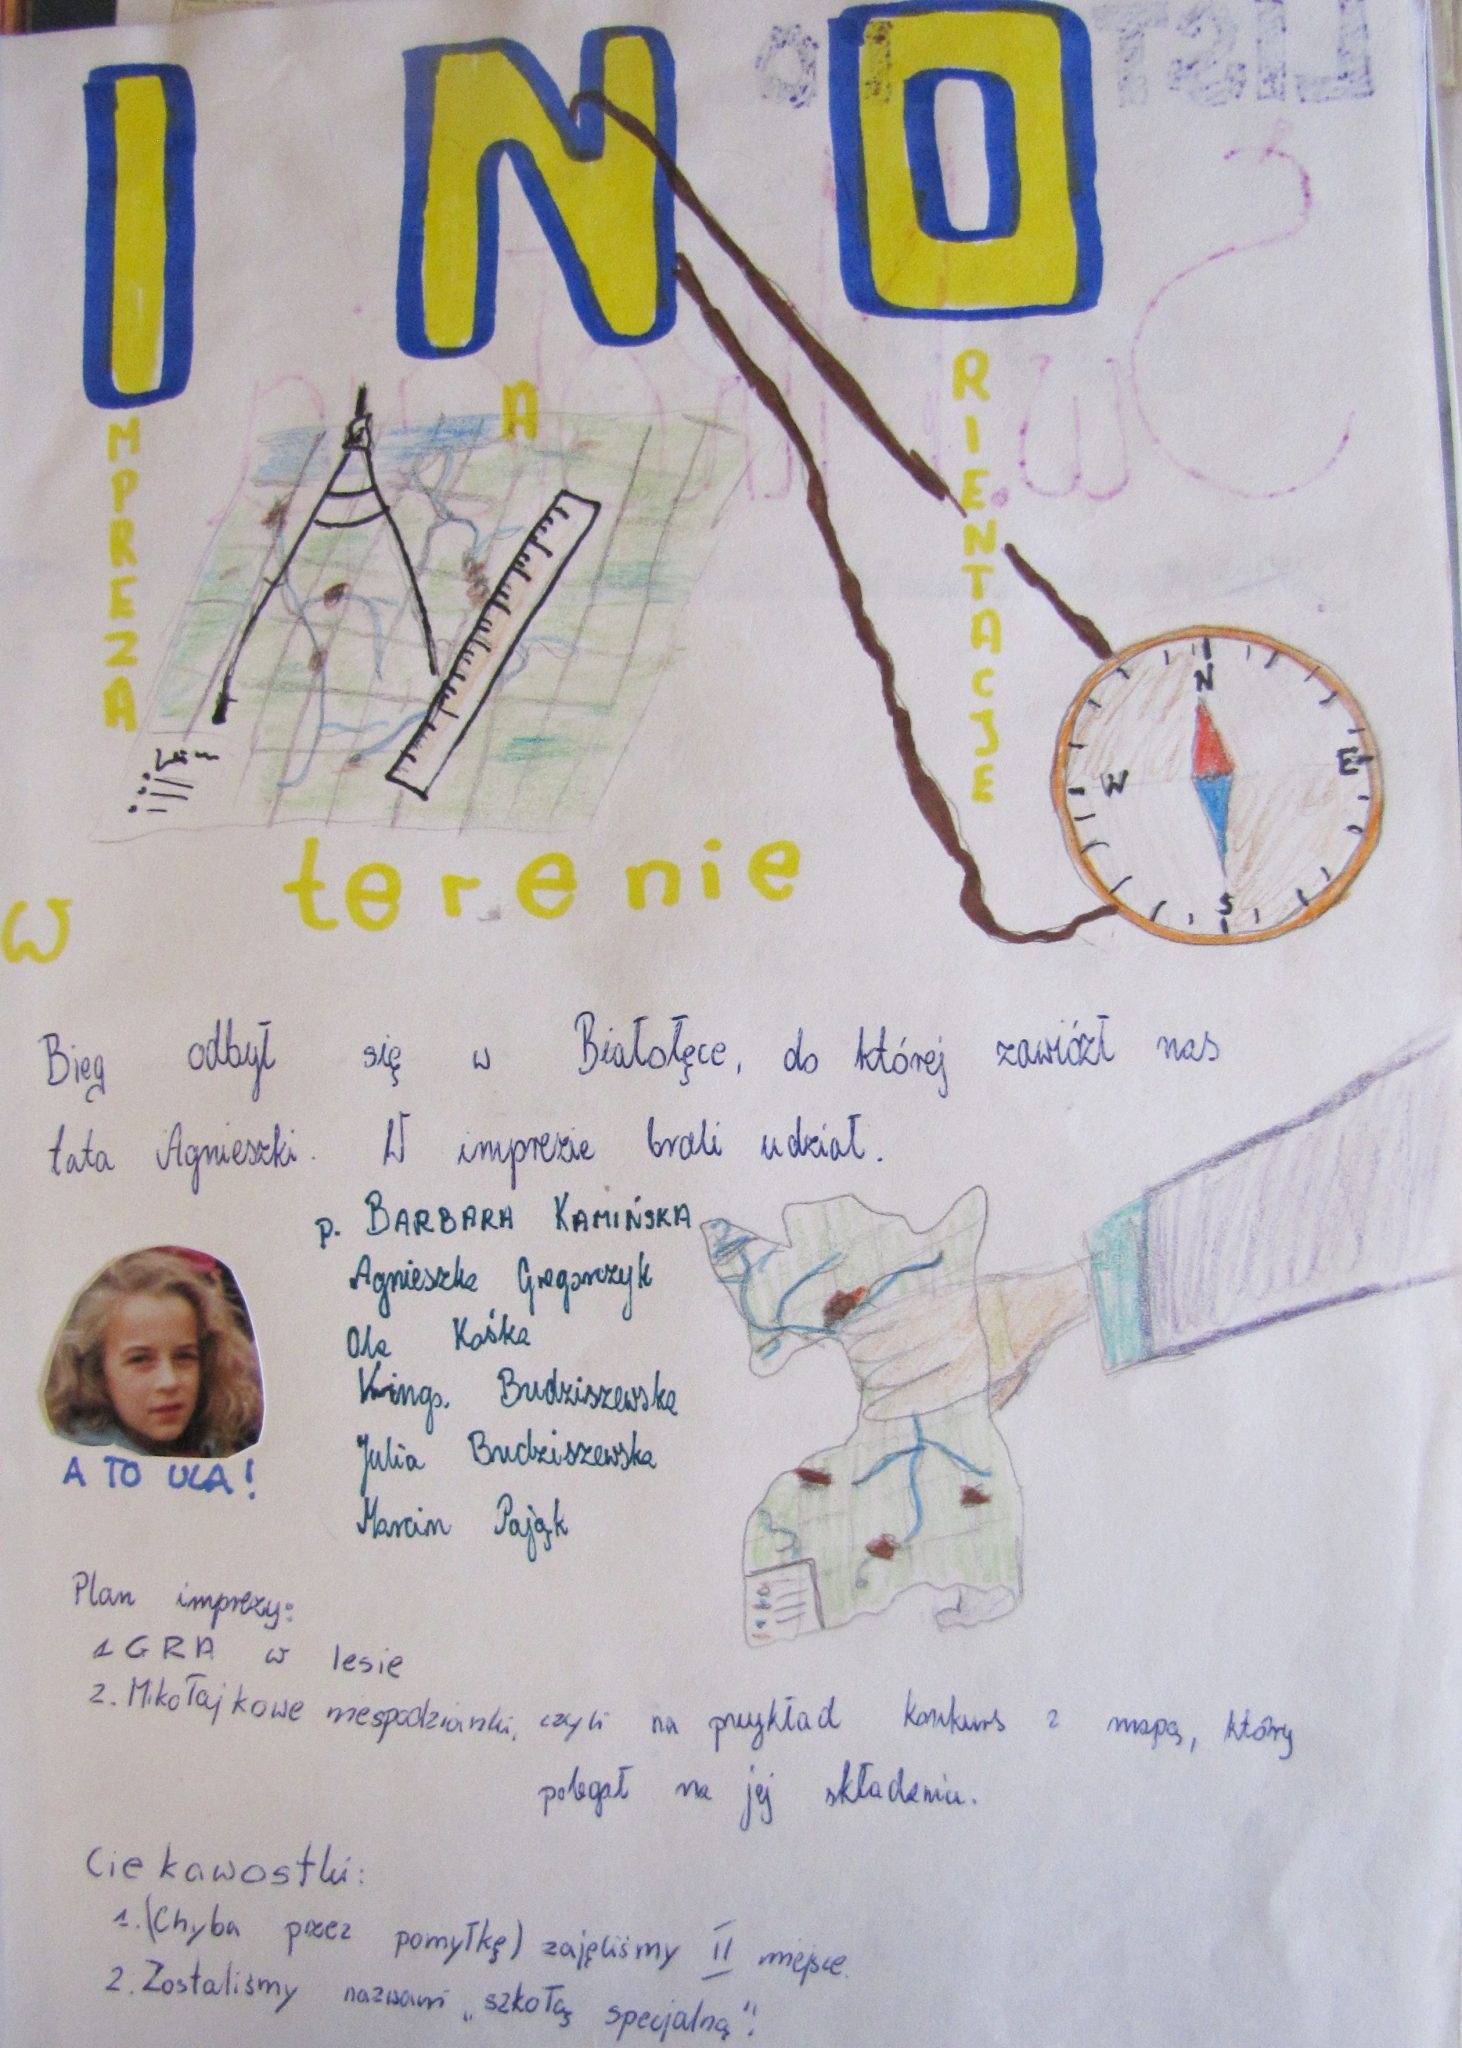 INO
IMPREZA
NA
ORIENTACJE
w terenie
N
W
E
S
Bieg odbył się w Białołęce, do której zawiózł nas
tata Agnieszki. W imprezie brali udział.
p. BARBARA KAMIŃSKA
Agnieszka Gregorczyk
Ola Kośka
Kinga Budziszewska
Julia Budziszewska
Marcin Pająk
A TO ULA!
Plan imprezy:
1 GRA w lesie
2. Mikołajkowe niespodzianki, czyli na przykład konkurs z mapą, który
polegał na jej składaniu.
Ciekawostki:
1. (Chyba przez pomyłkę) zajęliśmy II miejsce.
2. Zostaliśmy nazwani „szkołą specjalną".